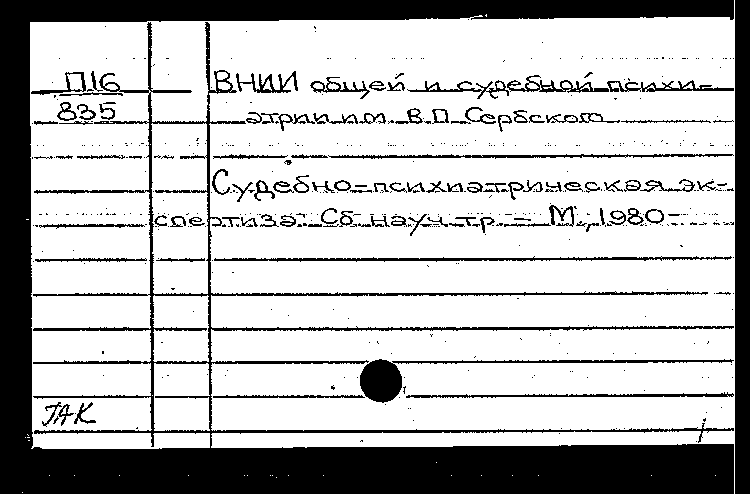 П16
835
ВНИИ общей и судебной психи-
атрии им. В.П. Сербского
Судебно-психиатрическая эк-
спертиза: Сб. науч. тр. – М., 1980-
ГАК
1